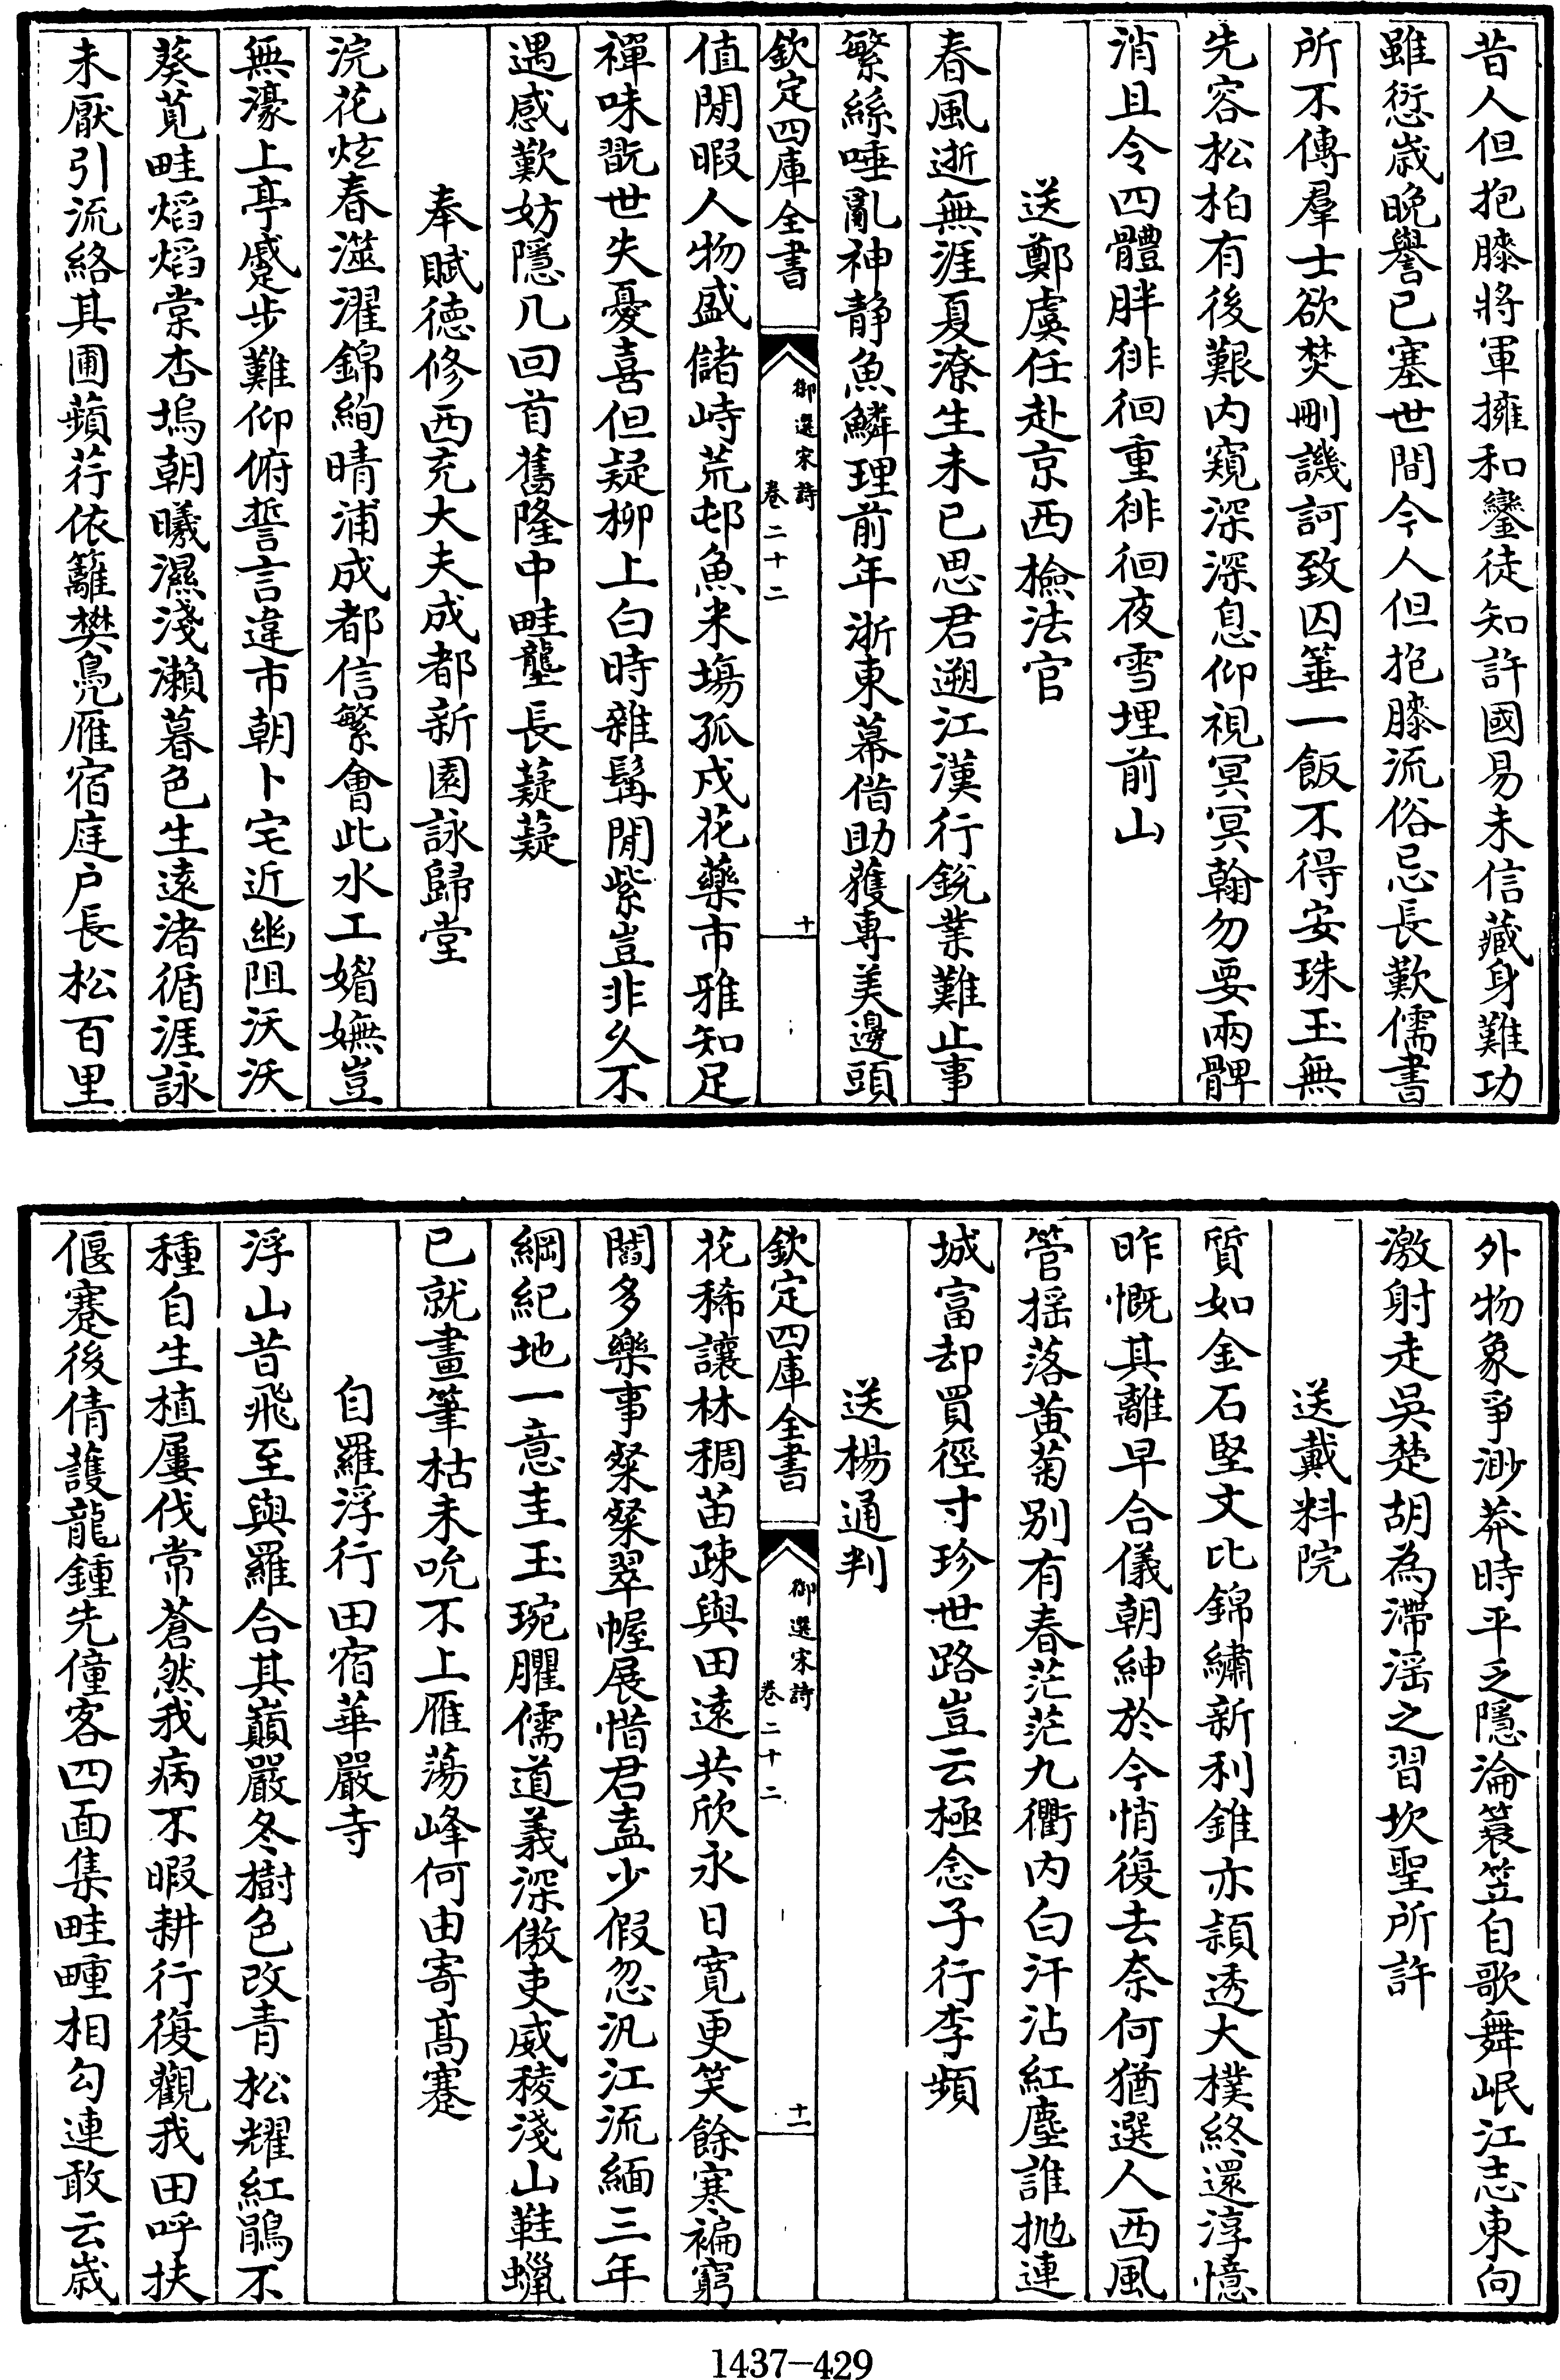 昔人但抱膝將軍擁和鑾徒知許國易未信藏身難功
雖愆歲晚譽已塞世間今人但抱膝流俗忌長歎儒書
所不傳羣士欲焚刪譏訶致囚箠一飯不得安珠玉無
先容松柏有後艱内窺深深息仰視冥冥翰勿要兩髀
消且令四體胖徘徊重徘徊夜雪埋前山
送鄭虞任赴京西檢法官
春風逝無涯夏潦生未已思君遡江漢行銳業難止事
繁絲唾亂神靜魚鱗理前年浙東幕借助獲專美邊頭
欽定四庫全書
御選宋詩
卷二十二
十
值閒暇人物盛儲峙荒邨魚米塲孤戍花藥市雅知足
禪味翫世失憂喜但疑柳上白時雜髯閒紫豈非久不
遇感歎妨隱几回首舊隆中畦壟長薿薿
奉賦德修西充大夫成都新園詠歸堂
浣花炫春滋濯錦絢晴浦成都信繁會此水工媚嫵豈
無濠上亭蹙步難仰俯誓言違市朝卜宅近幽阻沃沃
葵莧畦熖熖棠杏塢朝曦濕淺瀨暮色生遠渚循涯詠
未厭引流絡其圃蘋荇依籬樊鳬雁宿庭户長松百里
外物象爭渺莽時平乏隱淪簑笠自歌舞岷江志東向
激射走吳楚胡為滯滛之習坎聖所許
送戴料院
質如金石堅文比錦繡新利錐亦頴透大樸終還淳憶
昨慨其離早合儀朝紳於今悄復去奈何猶選人西風
管揺落黄菊别有春茫茫九衢内白汗沾紅塵誰抛連
城富却買徑寸珍世路豈云極念子行李頻
送楊通判
欽定四庫全書
御選宋詩
卷二十二
十一
花稀讓林稠苗疎與田遠共欣永日寛更笑餘寒褊窮
閻多樂事粲粲翠幄展惜君盍少假忽汎江流緬三年
綱紀地一意圭玉琬臞儒道義深傲吏威稜淺山鞋蠟
已就畫筆枯未吮不上雁蕩峰何由寄髙蹇
自羅浮行田宿華嚴寺
浮山昔飛至與羅合其巔嚴冬樹色改青松耀紅鵑不
種自生植屢伐常蒼然我病不暇耕行復觀我田呼扶
偃蹇後倩䕶龍鍾先僮客四面集畦畽相勾連敢云歳
1437-429